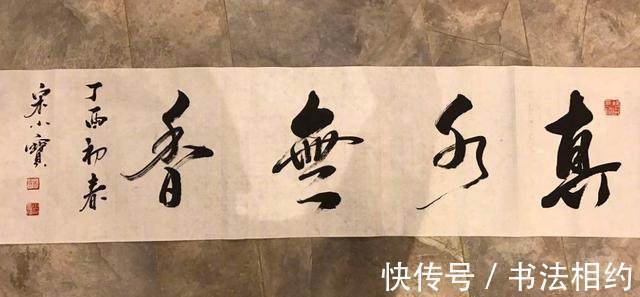 真水無香
丁酉初春
宋小寶
快传号 / 书法相约